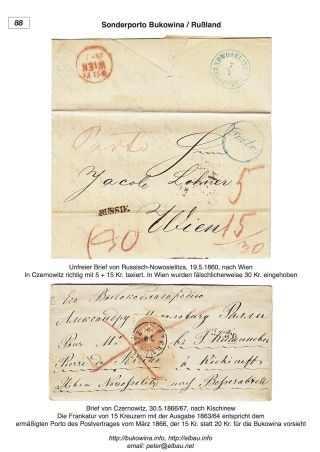 88
Sonderporto Bukowina / Rußland
WIEN
Porto
Herrn
Jacob Lohner
5
RUSSIE.
Wien
15
30
Unfreier Brief von Russisch-Nowosielitza, 19.5.1860, nach Wien
In Czernowitz richtig mit 5 + 15 Kr. taxiert. In Wien wurden fälschlicherweise 30 Kr. eingehoben
Его Высокоблагородию
Александру
Ралли
Pour Mr
въ Г. Кишиневъ
à Kichineff
Novoselitz
Brief von Czernowitz, 30.5.1866/67, nach Kischinew
Die Frankatur von 15 Kreuzern mit der Ausgabe 1863/64 entspricht dem
ermäßigten Porto des Postvertrages vom März 1866, der 15 Kr. statt 20 Kr. für die Bukowina vorsieht
http://bukowina.info, http://eibau.info
email: peter@eibau.net